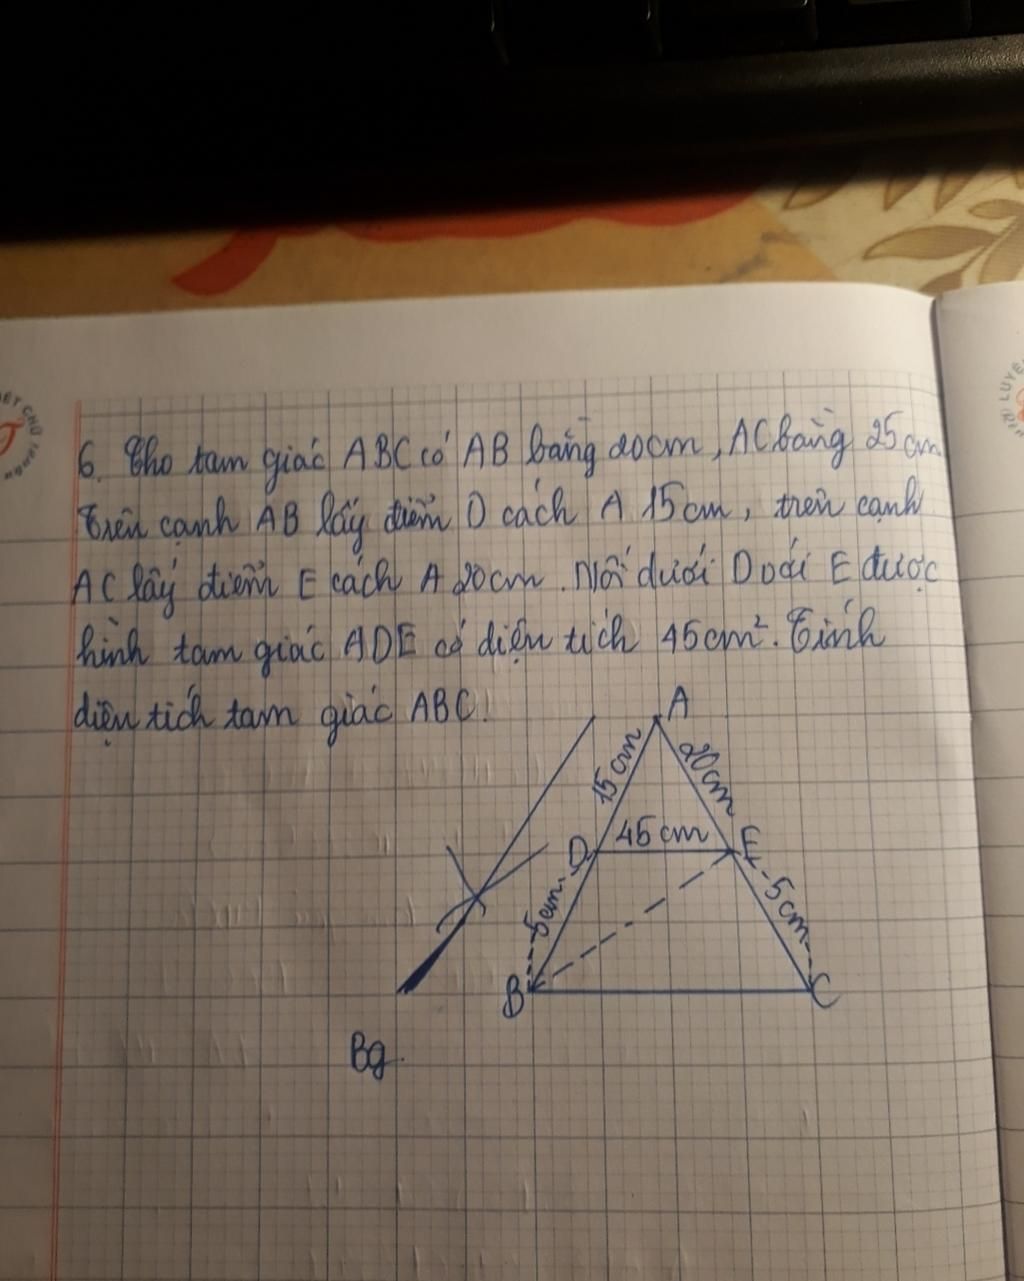 6. Cho tam giác ABC có AB bằng 20cm, AC bằng 25cm
Trên cạnh AB lấy điểm D cách A 15cm, trên cạnh
AC lấy điểm E cách A 20cm. Nối dưới D với E được
hình tam giác ADE có diện tích 45cm². Tính
diện tích tam giác ABC.
A
15cm
20cm
45cm
D
E
5cm
5cm
B
C
Bg